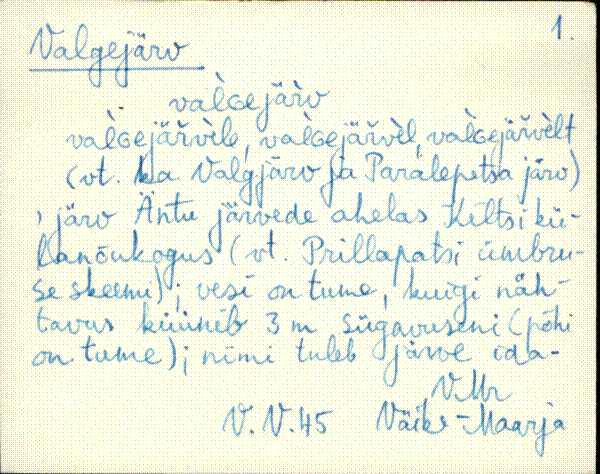 1.
Valgejärv
val̀ɢejär̀v
val̀ɢejär̆vèle, val̀ɢejär̆vèl, val̀ɢejär̆vèlt
(vt. ka Valgjärv ja Paralepetsa järv)
, järv Äntu järvede ahelas Kiltsi kü-
lanõukogus (vt. Prillapatsi ümbru-
se skeemi); vesi on tume, kuigi näh-
tavus küünib 3 m sügavuseni (põhi
on tume); nimi tuleb järve ida-
V.Mr
V.V.45 Väike-Maarja